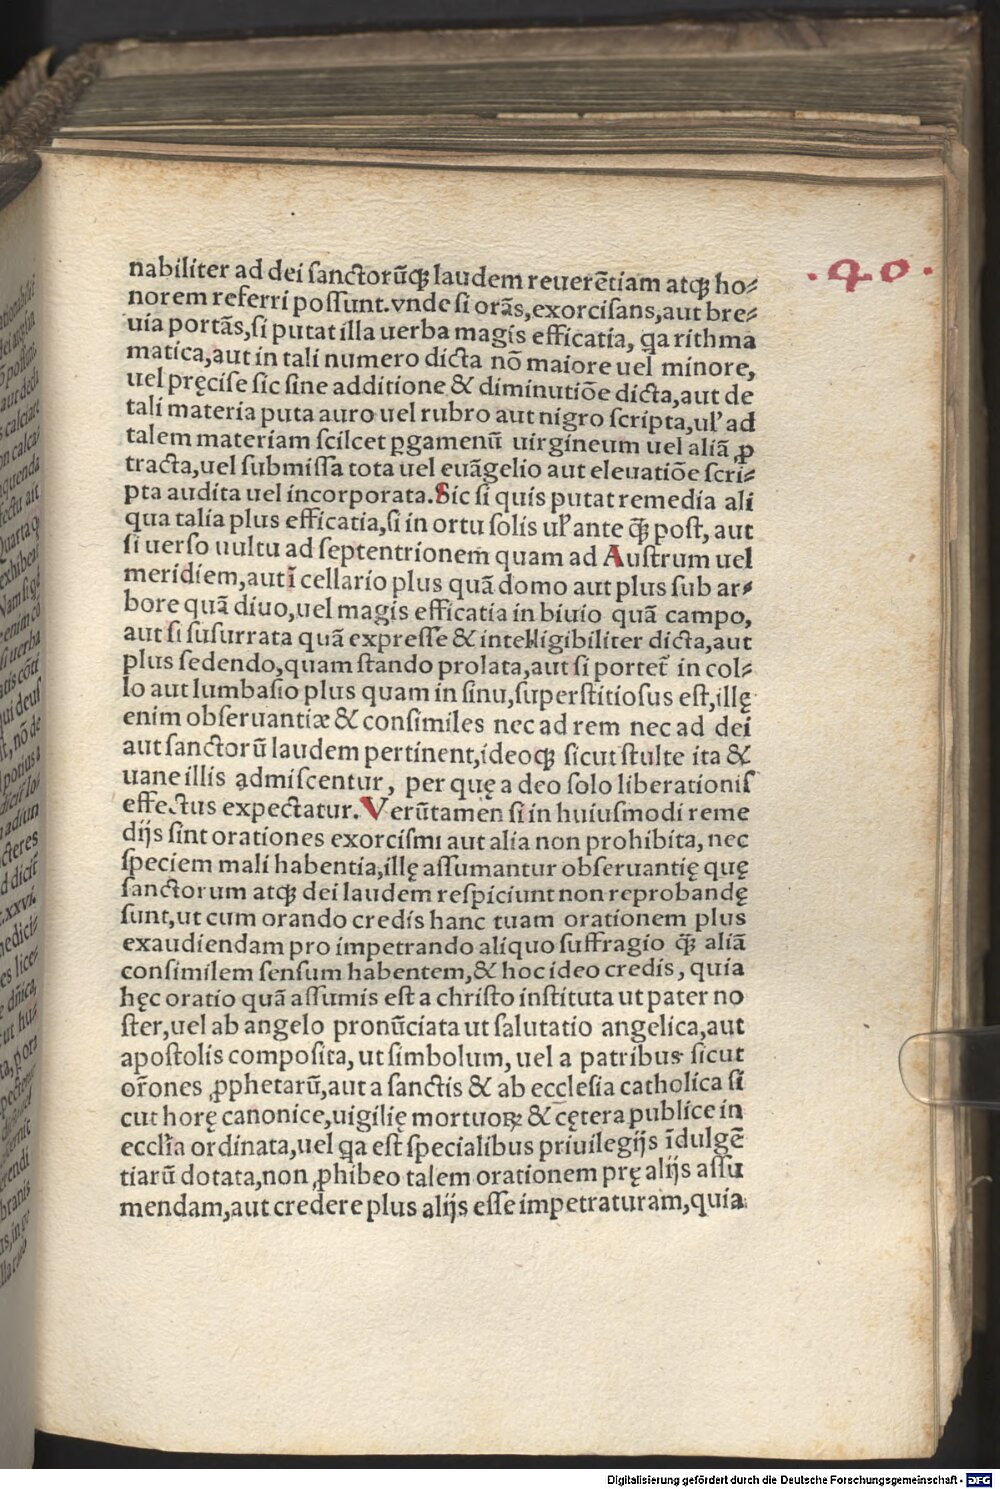 .40.
nabiliter ad dei ſanctorūqꝫ laudem reuerētiam atqꝫ ho⸗
norem referri poſſunt.vnde ſi orās,exorciſans,aut bre⸗
uia portās,ſi putat illa uerba magis efficatia, qa rithma
matica,aut in tali numero dicta nō maiore uel minore,
uel pręciſe ſic ſine additione & diminutiōe dicta,aut de
tali materia puta auro uel rubro aut nigro ſcripta,ul' ad
talem materiam ſcilcet ꝑgamenū uirgineum uel aliā ꝓ
tracta,uel ſubmiſſa tota uel euāgelio aut eleuatiōe ſcri⸗
pta audita uel incorporata.Sic ſi quis putat remedia ali
qua talia plus efficatia,ſi in ortu ſolis ul' ante q̄ꝫ poſt, aut
ſi uerſo uultu ad ſeptentrionem quam ad Auſtrum uel
meridiem,aut ī cellario plus quā domo aut plus ſub ar⸗
bore quā diuo,uel magis efficatia in biuio quā campo,
aut ſi ſuſurrata quā expreſſe & intelligibiliter dicta,aut
plus ſedendo,quam ſtando prolata,aut ſi portet̄ in col⸗
lo aut lumbaſio plus quam in ſinu,ſuperſtitioſus eſt,illę
enim obſeruantiæ & conſimiles nec ad rem nec ad dei
aut ſanctorū laudem pertinent,ideoqꝫ ſicut ſtulte ita &
uane illis admiſcentur, per quę a deo ſolo liberationiſ
effectus expectatur.Verūtamen ſi in huiuſmodi reme
dijs ſint orationes exorciſmi aut alia non prohibita, nec
ſpeciem mali habentia,illę aſſumantur obſeruantię quę
ſanctorum atqꝫ dei laudem reſpiciunt non reprobandę
ſunt,ut cum orando credis hanc tuam orationem plus
exaudiendam pro impetrando aliquo ſuffragio q̄ꝫ aliā
conſimilem ſenſum habentem,& hoc ideo credis, quia
hęc oratio quā aſſumis eſt a chriſto inſtituta ut pater no
ſter,uel ab angelo pronūciata ut ſalutatio angelica,aut
apoſtolis compoſita, ut ſimbolum, uel a patribus ſicut
or̄ones ꝓphetarū,aut a ſanctis & ab eccleſia catholica ſi
cut horę canonice,uigilię mortuoꝝ & cętera publice in
eccl̄ia ordinata,uel qa eſt ſpecialibus priuilegijs īdulgē
tiarū dotata,non ꝓhibeo talem orationem prę alijs aſſu
mendam,aut credere plus alijs eſſe impetraturam,quia
Digitalisierung gefördert durch die Deutsche Forschungsgemeinschaft - DFG